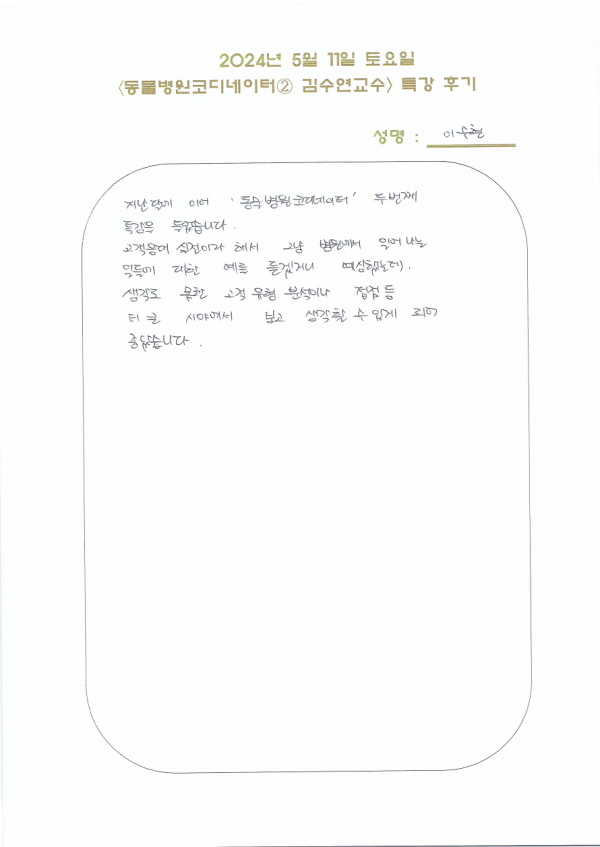 2024년 5월 11일 토요일
<동물병원코디네이터② 김수연교수> 특강 후기
성명 : 이수현
지난달에 이어 '동물병원코디네이터' 두번째
특강을 들었습니다.
고객응대 실전이라 해서 그냥 병원에서 일어나는
일들에 대한 예를 들겠거니 예상했는데,
생각도 못한 고객 유형 분석이나 접점 등
더 큰 시야에서 보고 생각할 수 있게 되어
좋았습니다.